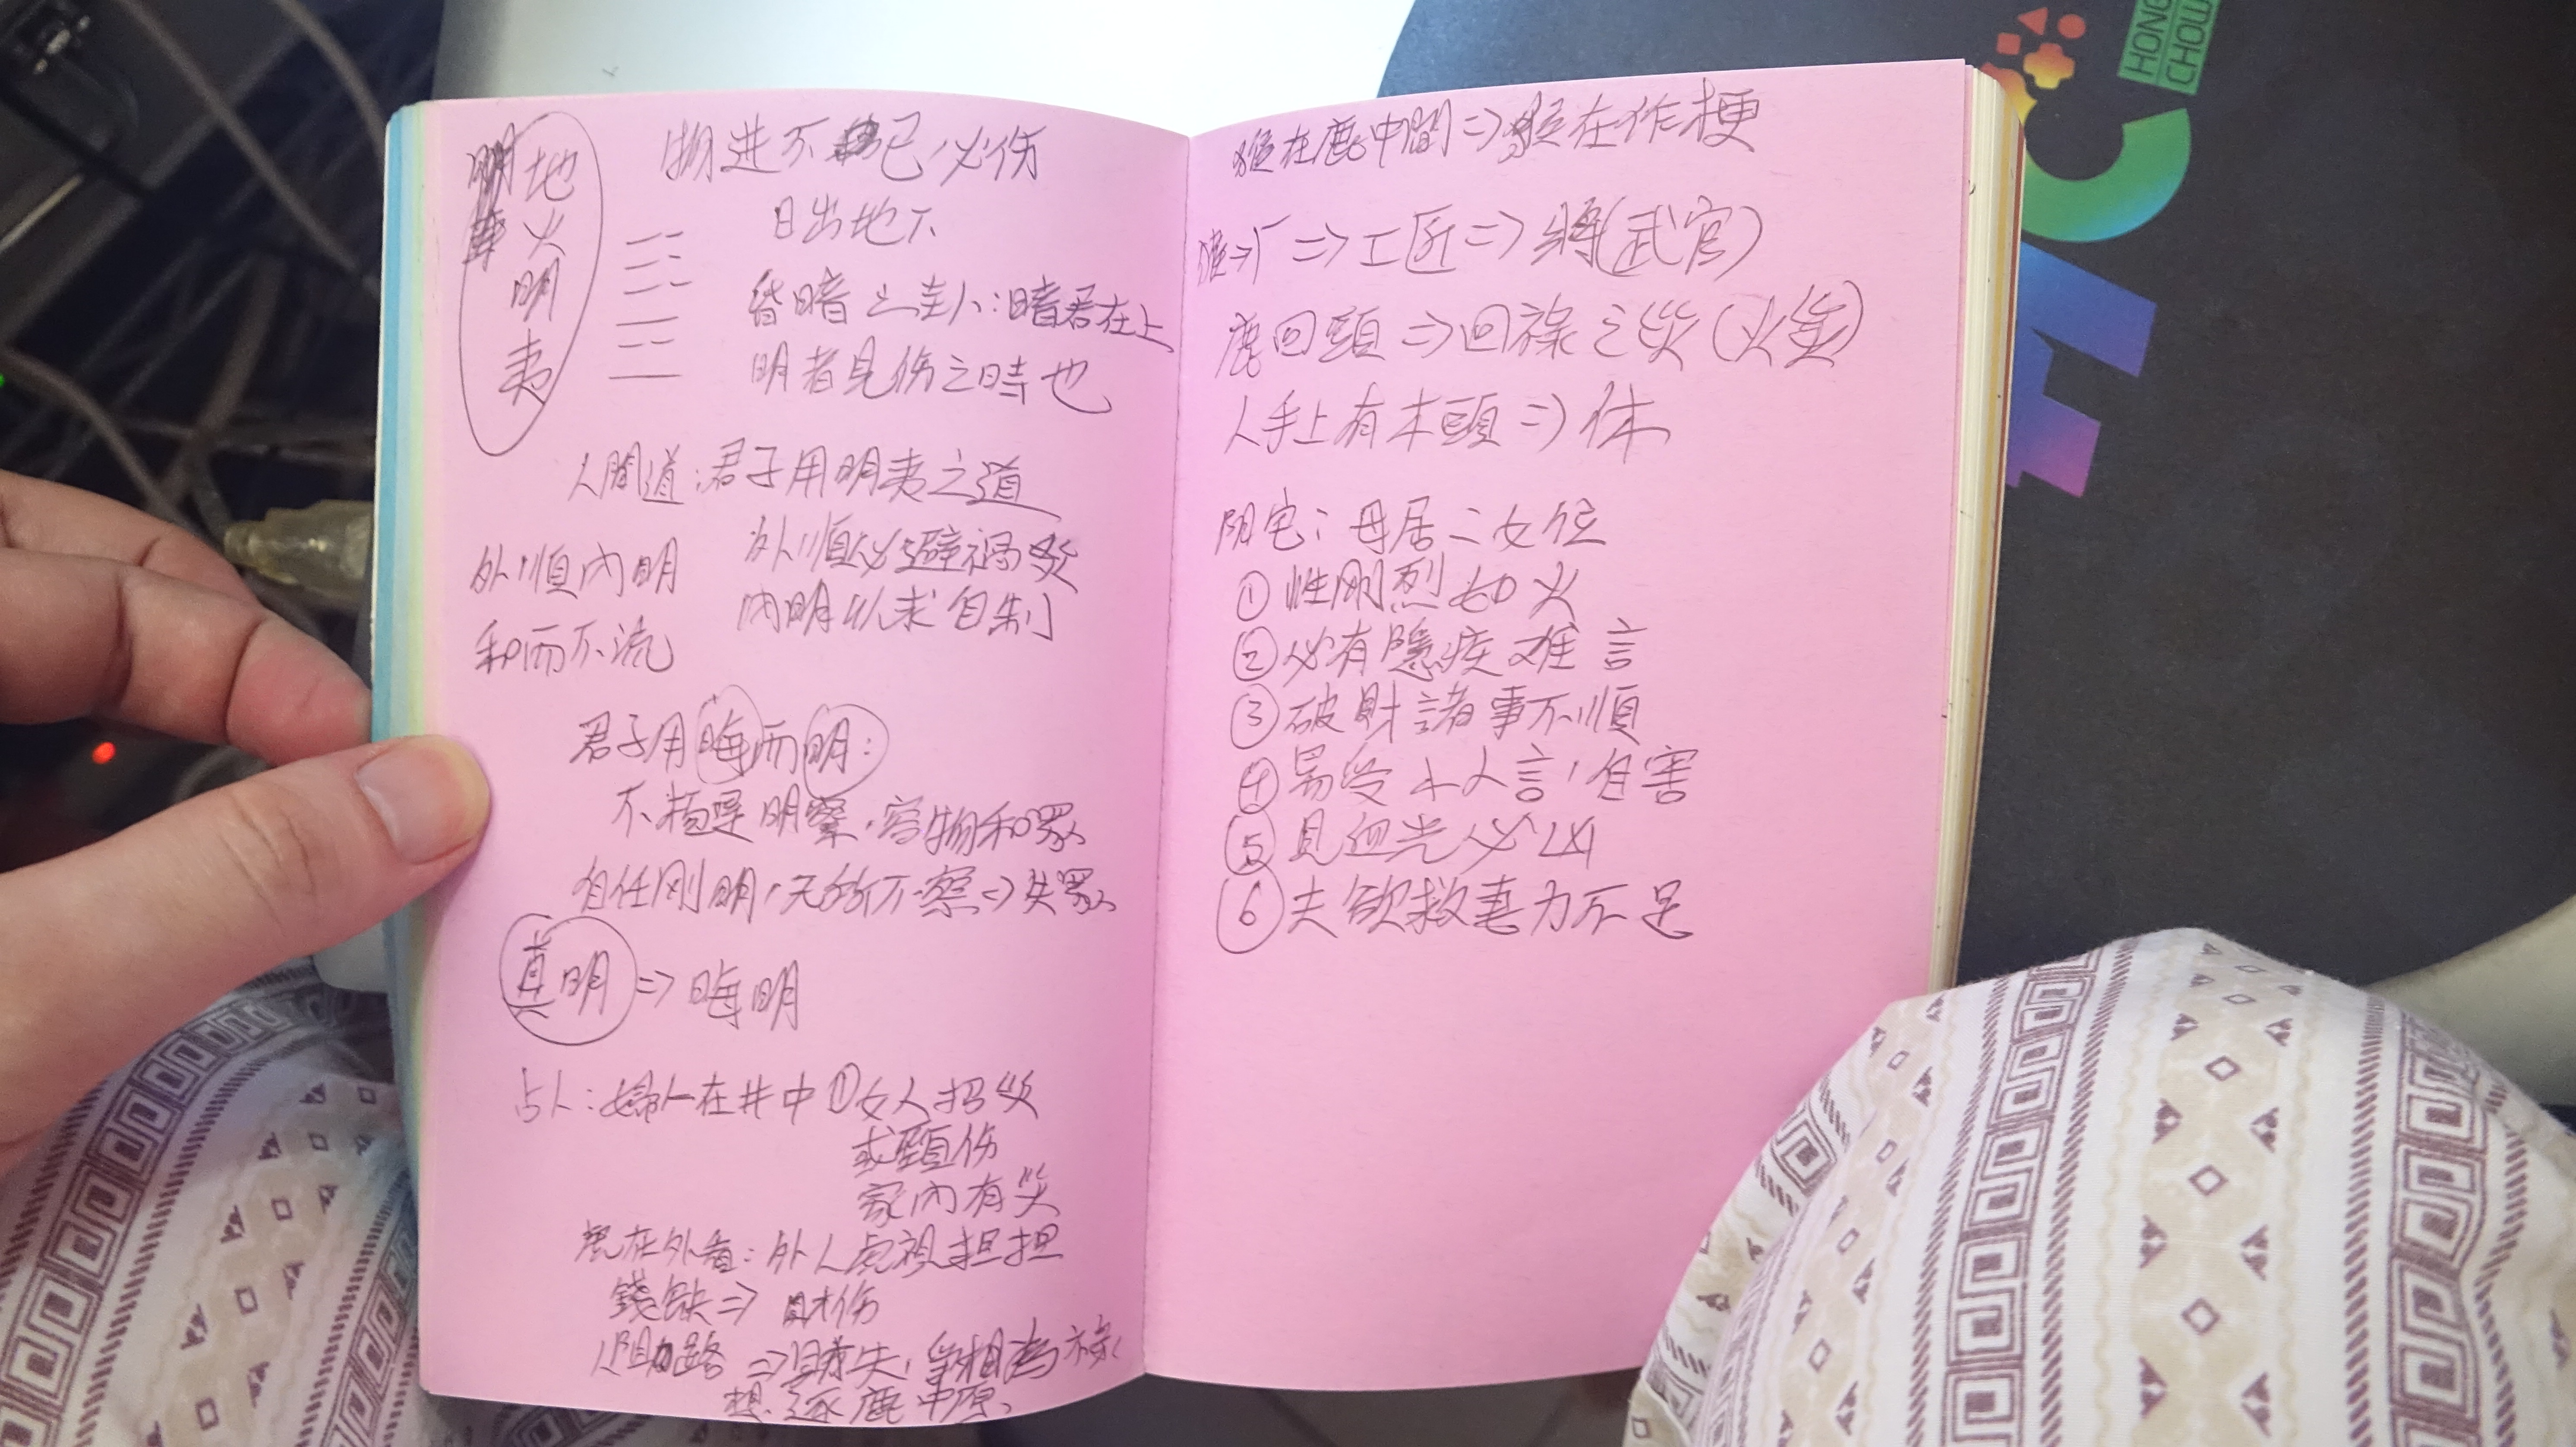 地火明夷
物進不已,必伤
日出地下
昏暗之卦:暗君在上
明者見伤之時也
人間道:君子用明夷之道
外順內明
和而不流
外順以避禍災
內明以求自制
君子用晦而明:
不極其明察,容物和眾
自任刚明,无所不察=>失眾
真明=>晦明
占人:婦人在井中①女人招災
或頭伤
家內有災
虎在外者:外人虎視担担
錢缺=>財伤
人路=>失,爭相為祿
想逐鹿中原,
猴在鹿中間=>猴在作梗
=>工匠=>將(武官)
鹿回頭=>回祿之災(火災)
人手上有木頭=>休
阴宅:母居二女位
①性刚烈如火
②必有隱疾难言
③破財諸事不順
④易受小人言,自害
⑤見血光必凶
⑥夫欲救妻力不足
HONG
CHOW
HC